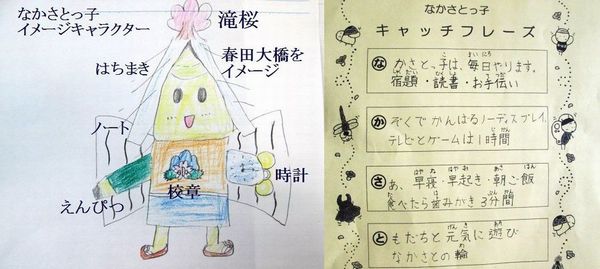 なかさとっ子
イメージキャラクター
滝桜
春田大橋を
イメージ
はちまき
ノート
時計
校章
えんぴつ
なかさとっ子
キャッチフレーズ
な かさとっ子は、毎日やります。
宿題・読書・お手伝い
か ぞくでがんばるノーディスプレイ
テレビとゲームは1時間
さ あ、早寝・早起き・朝ご飯
食べたら歯みがき3分間
と もだちと元気に遊び
なかさとの輪